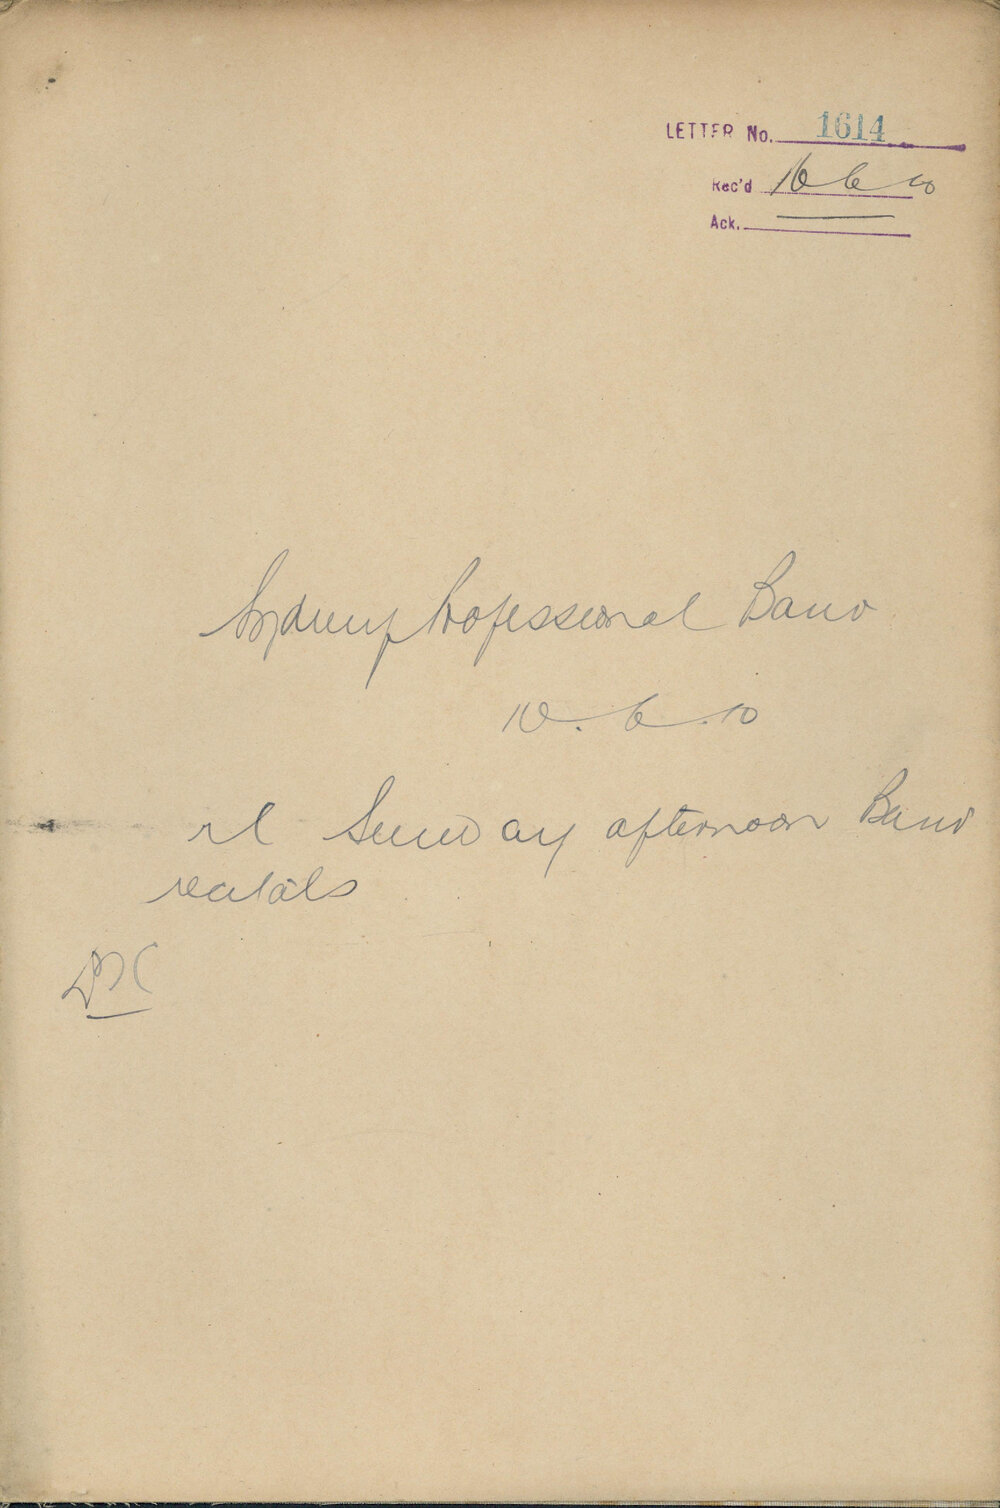 LETTER No. 1614
Rec'd 10 6 10
Ack.
Sydney Professional Band
10.6.10
re Sunday afternoon Band
recitals